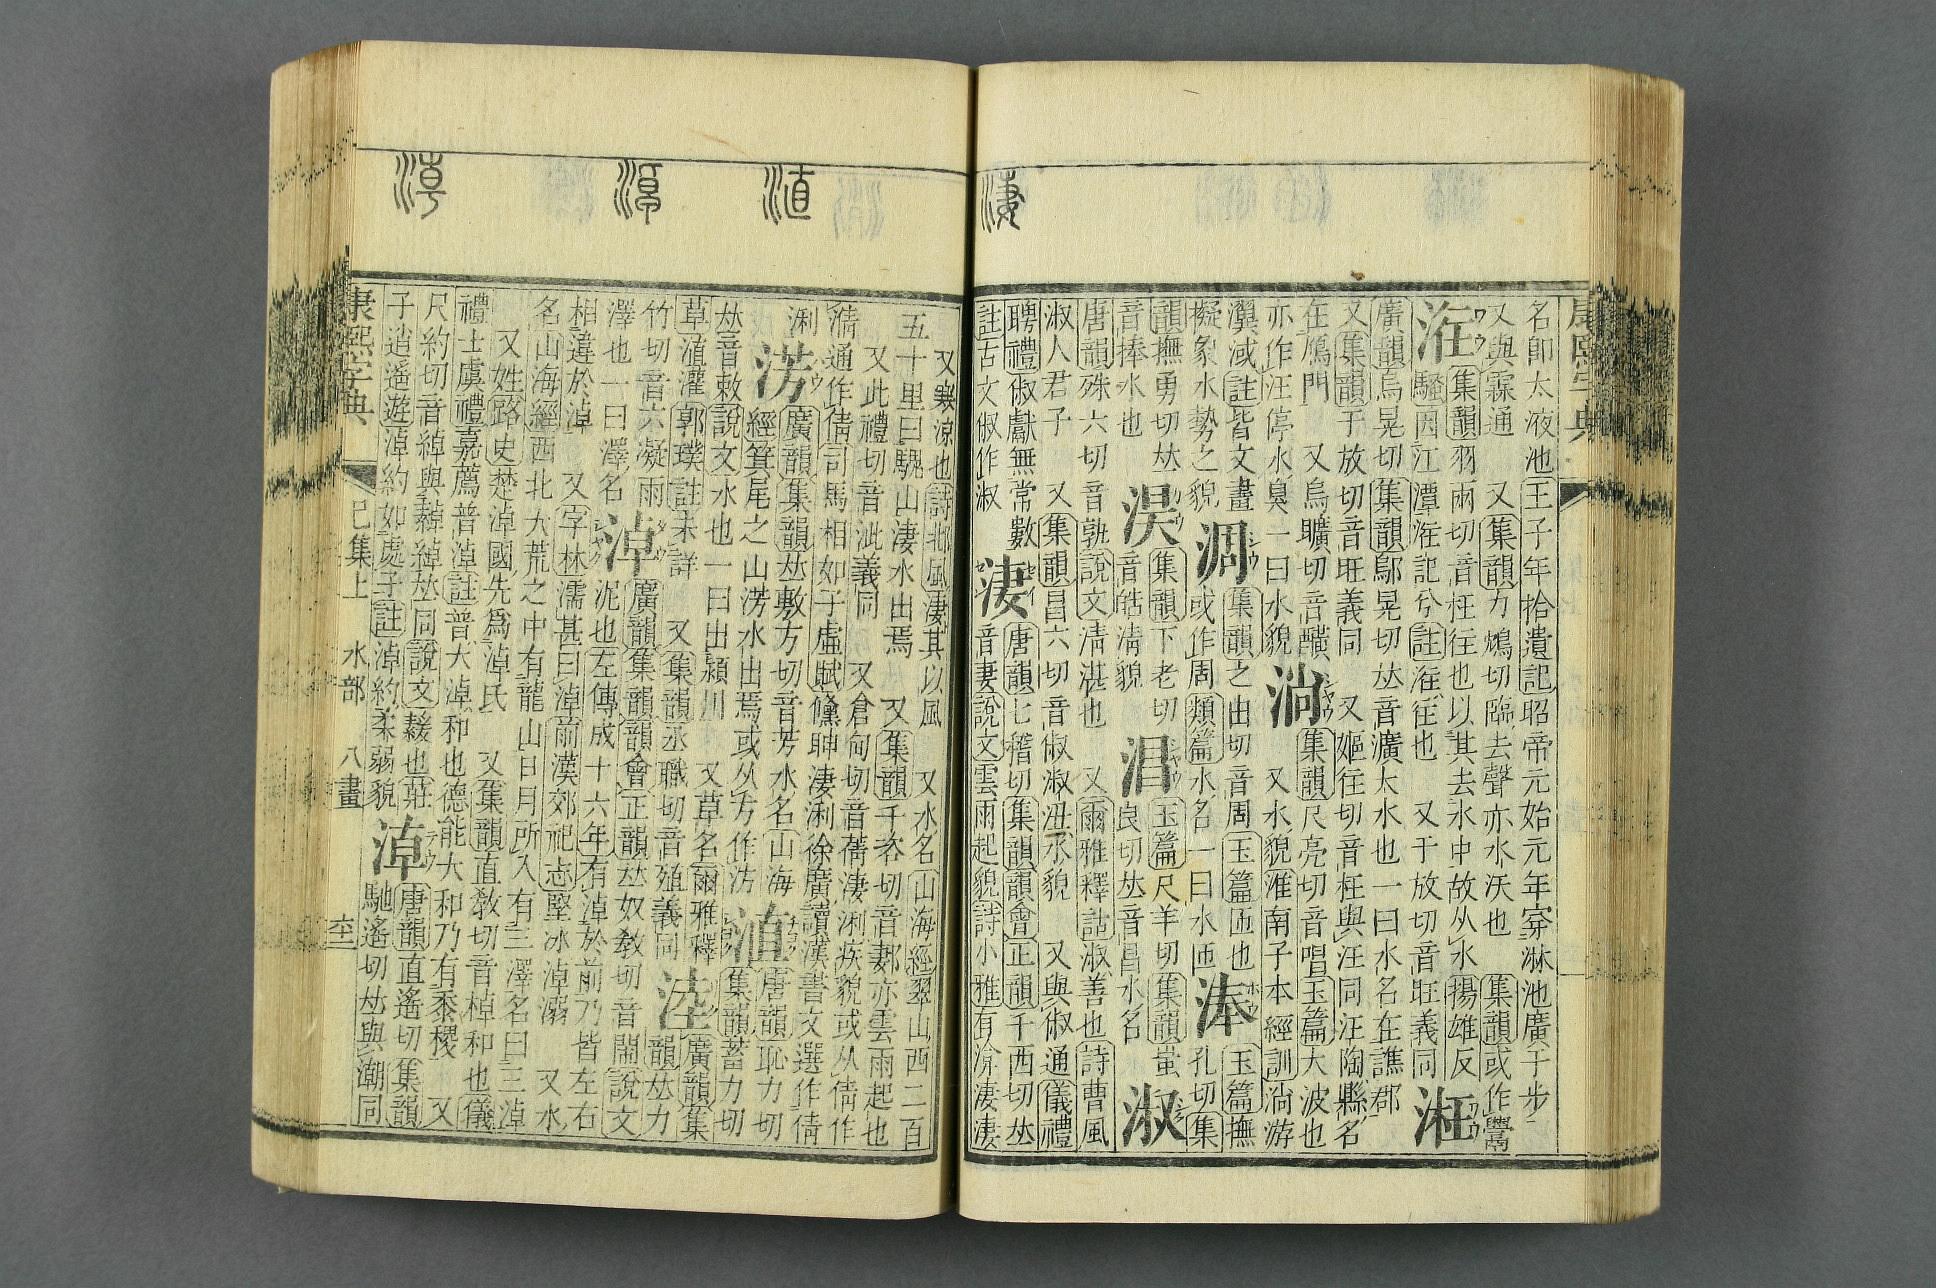 名卽太液池王子年拾遺記昭帝元始元年穿淋池廣千步
又與霖通　又集韻力鴆切臨去聲亦水沃也
集韻或作
集韻羽兩切音枉往也以其去水中故从水揚雄反
騷因江潭　記兮註　往也　又于放切音旺義同
廣韻烏晃切集韻鄔晃切𠀤音瀇大水也一曰水名在譙郡
又集韻于放切音旺義同　又嫗往切音枉與汪同汪陶縣名
在鴈門　又烏曠切音
集韻尺亮切音唱玉篇大波也
亦作汪停水臭一曰水貌
淌
又水貌淮南子本經訓淌游
瀷淢註皆文畫
擬象水勢之貌
淍
集韻之由切音周玉篇匝也
或作周類篇水名一曰水匝
淎
玉篇撫
孔切集
韻撫勇切𠀤
音捧水也
淏
集韻下老切
音皓清貌
淐
玉篇尺羊切集韻蚩
良切𠀤音昌水名
淑
唐韻殊六切音孰說文淸湛也　又爾雅釋詁淑善也詩曹風
淑人君子　又集韻昌六切音俶淑沑水貌　又與俶通儀禮
聘禮俶獻無常數
註古文俶作淑
淒
唐韻七稽切集韻韻會正韻千西切𠀤
音妻說文雲雨起貌詩小雅有渰淒淒
又寒涼也詩邶風淒其以風　又水名山海經翠山西二百
五十里曰騩山淒水出焉　又集韻千咨切音郪亦雲雨起也
又此禮切音泚義同　又倉甸切音蒨淒浰疾貌或从倩作
淸通作倩司馬相如子虛賦儵眒淒浰徐廣讀漢書文選作倩
浰
淓
廣韻集韻𠀤敷方切音芳水名山海
經箕尾之山淓水出焉或从方作汸
淔
唐韻恥力切
集韻蓄力切
𠀤音敕說文水也一曰出潁川　又草名爾雅釋
草淔灌郭璞註未詳　又集韻丞職切音殖義同
淕
廣韻集
韻𠀤力
竹切音六凝雨
澤也一曰澤名
淖
廣韻集韻韻會正韻𠀤奴敎切音鬧說文
泥也左傳成十六年有淖於前乃皆左右
相違於淖　又字林濡甚曰淖前漢郊祀志堅冰淖溺　又水
名山海經西北大荒之中有龍山日月所入有三澤名曰三淖
又姓路史楚淖國先爲淖氏　又集韻直敎切音棹和也儀
禮士虞禮嘉薦普淖註普大淖和也德能大和乃有黍稷　又
尺約切音綽與繛綽𠀤同說文繛也莊
子逍遙遊淖約如處子註淖約柔弱貌
淖
唐韻直遙切集韻
馳遙切𠀤與潮同
康熙字典　巳集上　水部　八畫